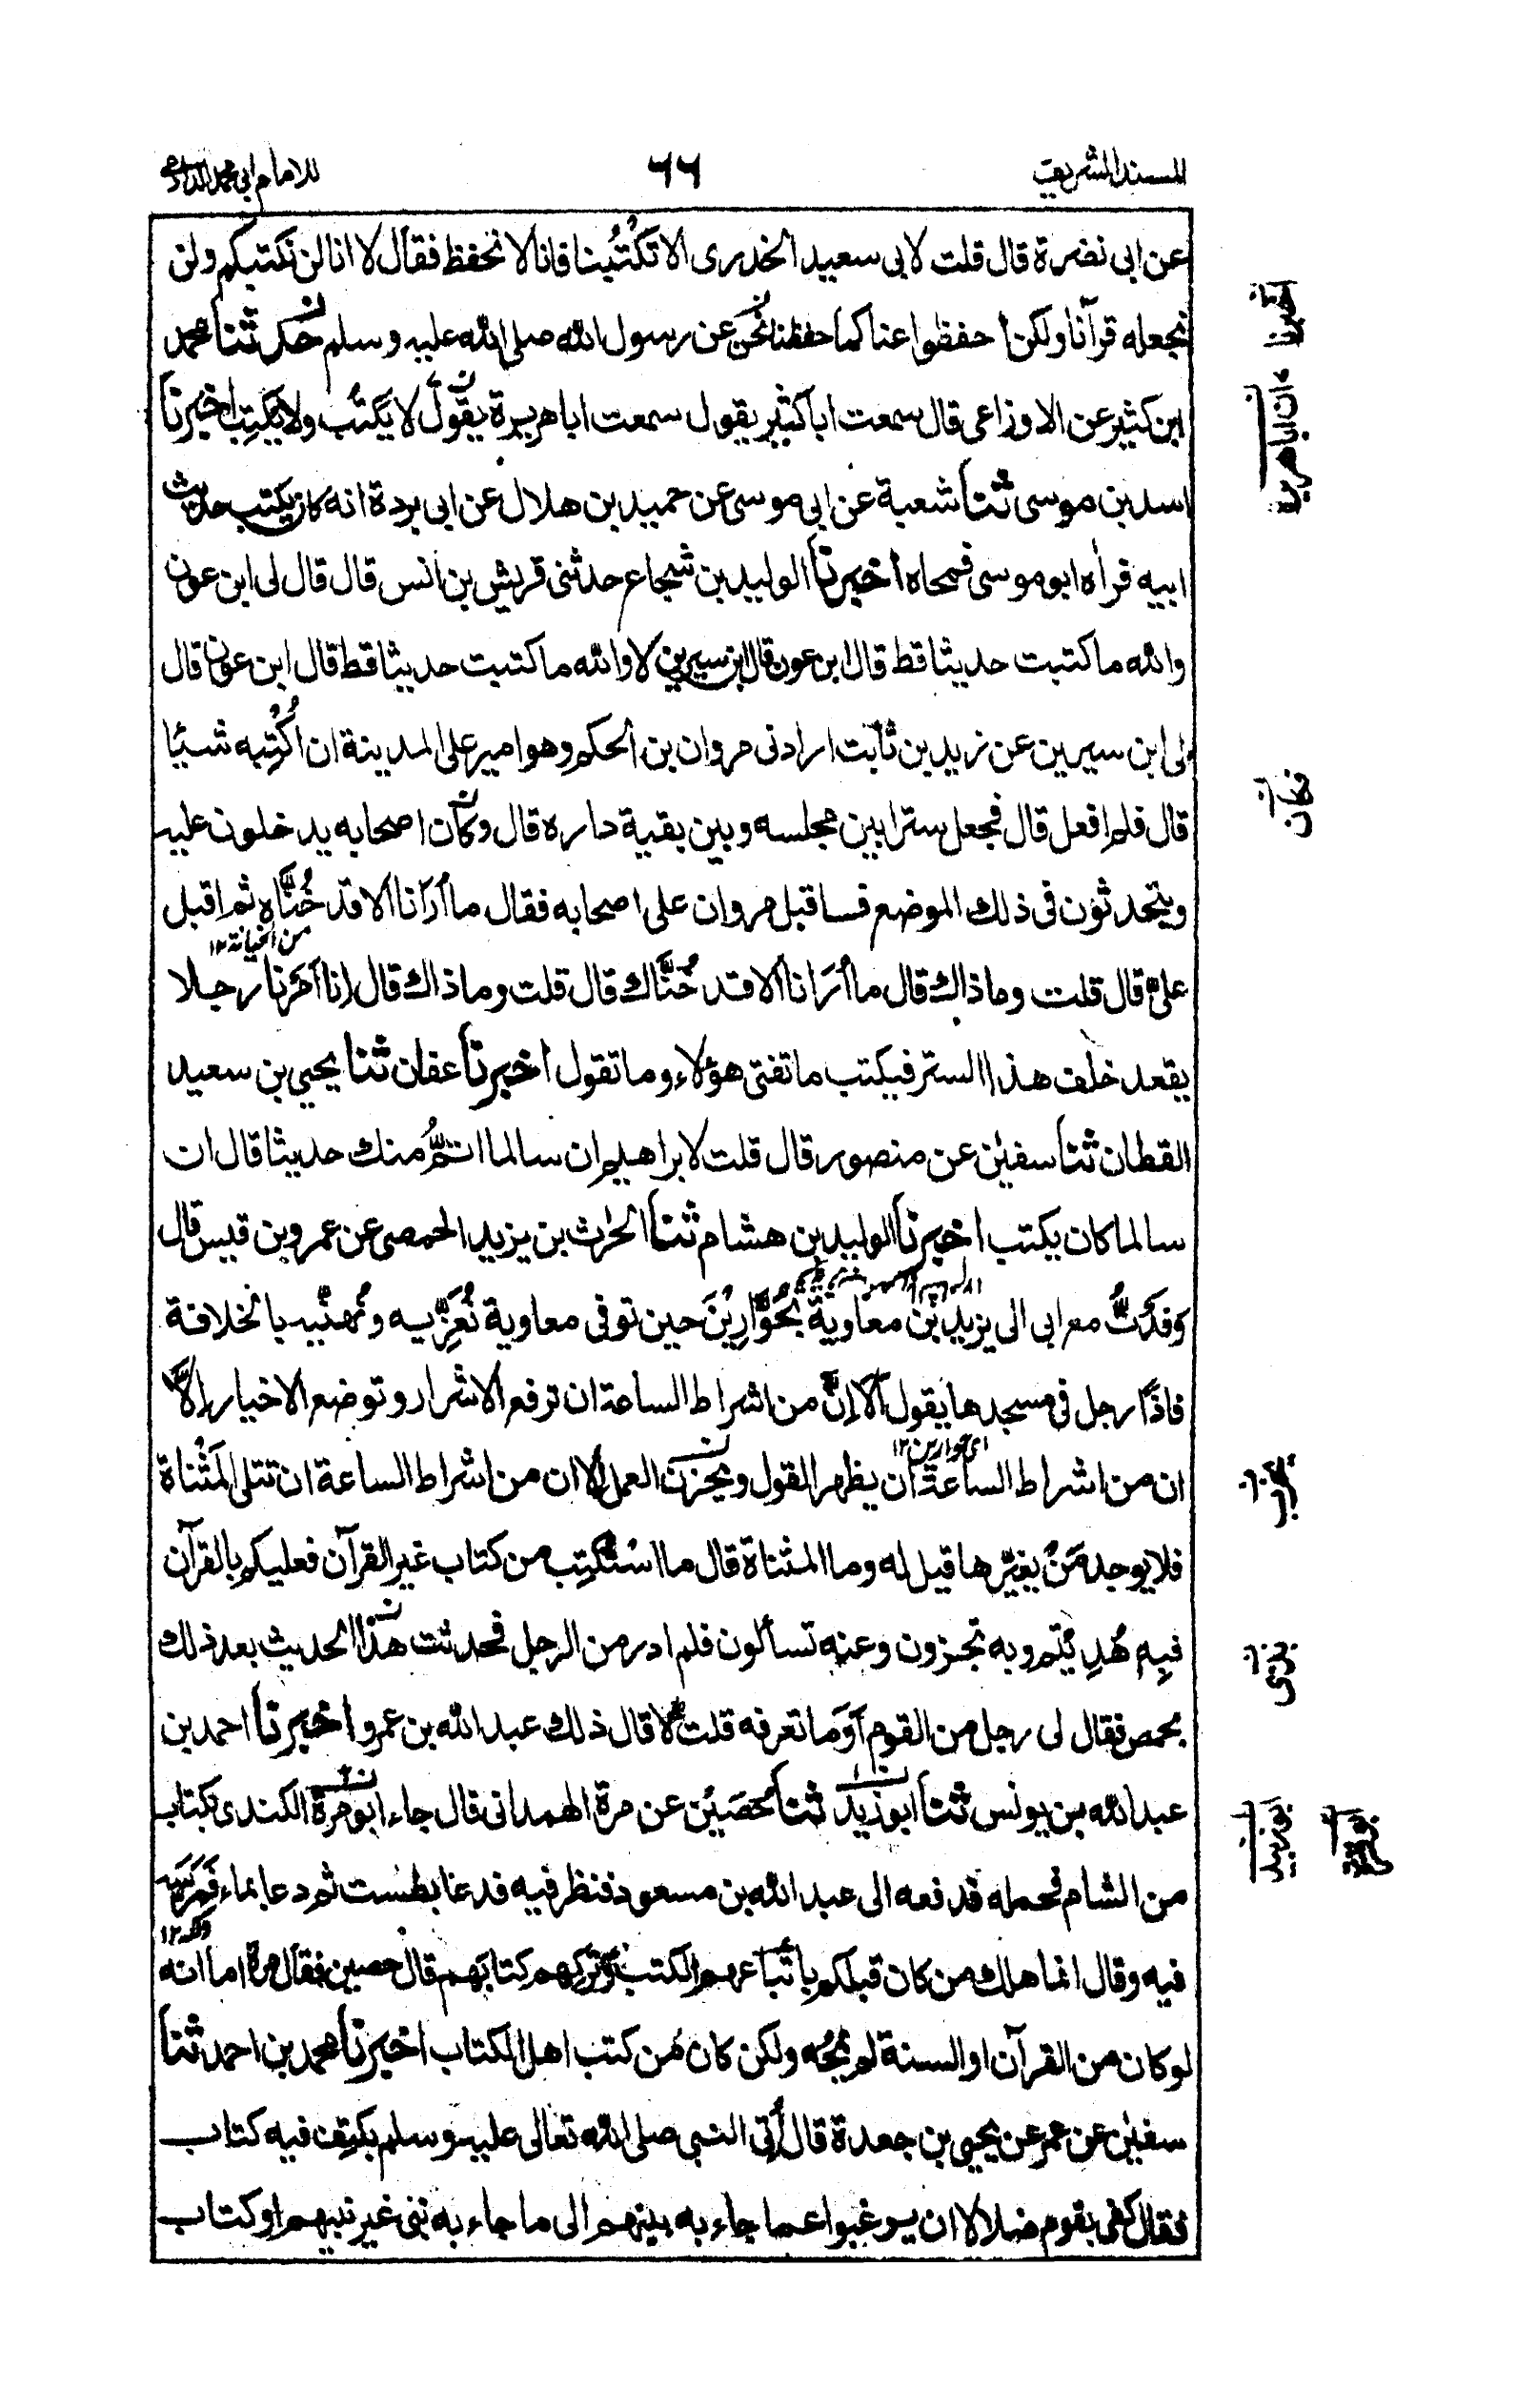 المسند الشريف ٦٦ للامام ابي محمد الدارمي
عن ابى نضرة قال قلت لابى سعيد الخدرى الا تُكْتِبُنا فانا لا نحفظ فقال لا انا لن نكتبكم ولن
نجعله قرآنا ولكن احفظوا عنا كما حفظنا نحن عن رسول الله صلى الله عليه وسلم حدثنا محمد
ابن كثير عن الاوزاعى قال سمعت ابا كثير يقول سمعت ابا هريرة يقول لا يَكْتُب ولا يُكْتِب اخبرنا
اسد بن موسى ثنا شعبة عن ابى موسى عن حميد بن هلال عن ابى بردة انه كان يكتب حديث
ابيه قرأه ابو موسى فمحاه اخبرنا الوليد بن شجاع حدثنى قريش بن انس قال قال لى ابن عون
والله ما كتبت حديثا قط قال ابن عون قال ابن سيرين لا والله ما كتبت حديثا قط قال ابن عون قال
لى ابن سيرين عن زيد بن ثابت ارادنى مروان بن الحكم وهو امير على المدينة ان اُكْتِبه شيئا
قال فلم افعل قال فجعل سترا بين مجلسه وبين بقية داره قال وكان اصحابه يدخلون عليه
ويتحدثون فى ذلك الموضع فاقبل مروان على اصحابه فقال ما اُرانا الا قد خُنَّاه ثم اقبل
من الخيانة١٢
علىّ قال قلت وما ذاك قال ما اُرَانا الا قد خُنَّاك قال قلت وما ذاك قال انا امرنا رجلا
يقعد خلف هذا الستر فيكتب ما تفتى هؤلاء وما تقول اخبرنا عفان ثنا يحيى بن سعيد
القطان ثنا سفيٰن عن منصور قال قلت لابراهيم ان سالما اتمُّ منك حديثا قال ان
سالما كان يكتب اخبرنا الوليد بن هشام ثنا الحٰرث بن يزيد الحمصى عن عمرو بن قيس قال
وَفَدْتُ مع ابى الى يزيد بن معاوية بحُوَّارِيْنَ حين توفى معاوية نُعَزِّيه ونُهنّيه بالخلافة
فاذا رجل فى مسجدها يقول اَلا اِنَّ من اشراط الساعة ان ترفع الاشرار و توضع الاخيار اَلا
اى حوارين١٢
ان من اشراط الساعة ان يظهر القول ويخزن العمل الا ان من اشراط الساعة ان تتلى المَثْناة
فلا يوجد مَنْ يغيّرها قيل له وما المثناة قال ما استُكْتِب من كتاب غير القرآن فعليكم بالقرآن
فبه هُدِيْتم وبه تجزون وعنه تسألون فلم ادر من الرجل فحدثت هذا الحديث بعد ذلك
بحمص فقال لى رجل من القوم اَوَما تعرفه قلت لا قال ذلك عبد الله بن عمرو اخبرنا احمد بن
عبد الله بن يونس ثنا ابو زبيد ثنا حُصَيْن عن مرة الهمدانى قال جاء ابو مرة الكندى بكتاب
من الشام فحمله فدفعه الى عبد الله بن مسعود فنظر فيه فدعا بطست ثم دعا بماء فمَرَسَه
دلكه١٢
فيه وقال انما هلك من كان قبلكم باتّباعهم الكتب وتركهم كتابَهم قال حصين فقال مرة اما انه
لو كان من القرآن او السنة لم يَمْحُه ولكن كان من كتب اهل الكتاب اخبرنا محمد بن احمد ثنا
سفيٰن عن عمرو عن يحيى بن جعدة قال اُتى النبى صلى الله تعالى عليه وسلم بكتِف فيه كتاب
فقال كفى بقوم ضلالا ان يرغبوا عما جاء به نبيهم الى ما جاء به نبى غير نبيهم او كتاب
اخبرنا
ان ابا هريرة
فكان